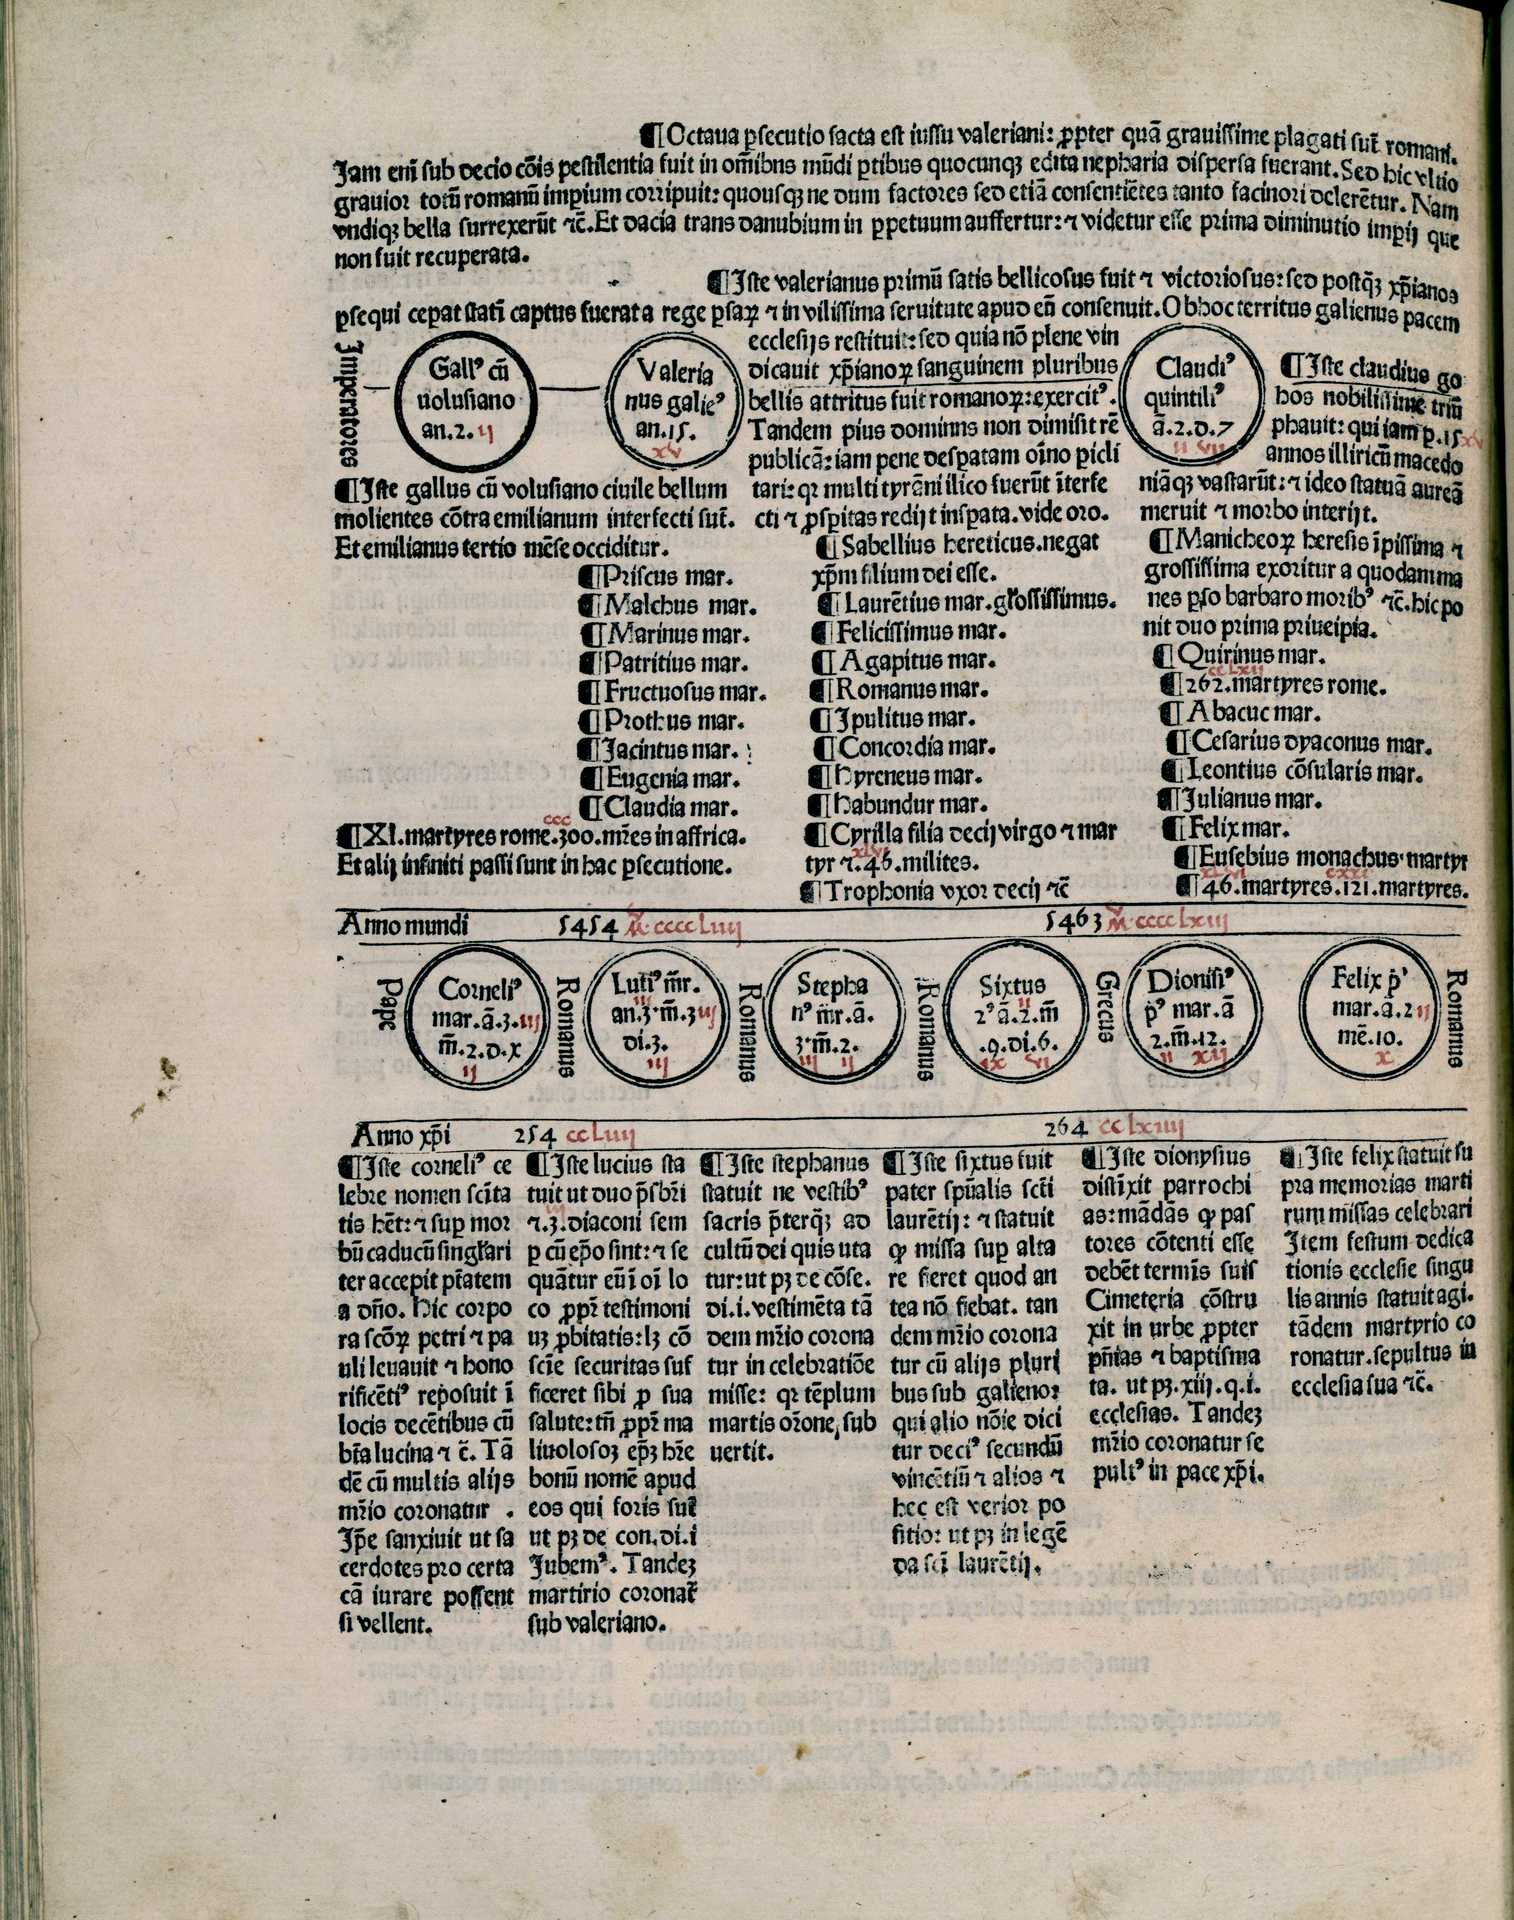 ¶Octaua ꝑsecutio facta est iussu valeriani: ꝓpter quã grauissime plagati sũt romani.
Jam eni sub decio cõis pestilentia fuit in om̃ibns mũdi ꝑtibus quocunqꝫ edita nepharia dispersa fuerant. Sed hic vltio
grauior totũ romanũ imꝑium corripuit: quousqꝫ ne dum factores sed etiã consentiẽtes tanto facinori delerẽtur. Nam
vndiqꝫ bella surrexerũt ⁊c̃. Et dacia trans danubium in ꝑpetuum auffertur: ⁊ videtur esse prima diminutio imꝑij que
non fuit recuperata.
¶Iste valerianus primũ satis bellicosus fuit ⁊ victoriosus: sed postqꝫ xp̃ianos
ꝑsequi cepat stati captus fuerat a rege ꝑsaꝝ ⁊ in vilissima seruitute apud eũ consenuit. Ob hoc territus galienus pacem
ecclesijs restituit: sed quia nõ plene vin
dicauit xp̃ianoꝝ sanguinem pluribus
bellis attritus fuit romanoꝝ: exercitꝰ.
Tandem pius dominns non dimisit rẽ
publicã: iam pene desꝑatam oĩno ꝑicli
tari: qꝛ multi tyrãni ilico fuerũt ĩterfe
cti ⁊ ꝓsꝑitas redijt insꝑata. vide oro.
Imperatores
Gallꝰ cũ
uolusiano
an.2. ij
Valeria
nus galieꝰ
an.15.
xv
Claudiꝰ
quintiliꝰ
ã.2.d.7
ij vij
¶Iste claudius go
hos nobilissime triũ
phauit: qui iam ꝑ.15 xv
annos illiricũ macedo
niãqꝫ vastarũt: ⁊ ideo statuã aureã
meruit ⁊ morbo interijt.
¶Iste gallus cũ volusiano ciuile bellum
molientes cõtra emilianum interfecti sũt.
Et emilianus tertio mẽse occiditur.
¶Priscus mar.
¶Malchus mar.
¶Marinus mar.
¶Patritius mar.
¶Fructuosus mar.
¶Prothus mar.
¶Jacintus mar.
¶Eugenia mar.
¶Claudia mar.
ccc
¶XI.martyres rome.300.mr̃es in affrica.
Et alij infiniti passi sunt in hac ꝑsecutione.
¶Sabellius hereticus.negat
xp̃m filium dei esse.
¶Laurẽtius mar.gl̃osissimus.
¶Felicissimus mar.
¶Agapitus mar.
¶Romanus mar.
¶Ipulitus mar.
¶Concordia mar.
¶hyreneus mar.
¶habundur mar.
¶Cyrilla filia decij virgo ⁊ mar
xlvi
tyr ⁊.46.milites.
¶Trophonia vxor decij ⁊c̃
¶Manicheoꝝ heresis ĩpissima ⁊
grossissima exoritur a quodam ma
nes ꝑso barbaro moribꝰ ⁊c̃. hic po
nit duo prima priueipia.
¶Quirinus mar.
cclxij
¶262.martyres rome.
¶Abacuc mar.
¶Cesarius dyaconus mar.
¶Leontius cõsularis mar.
¶Julianus mar.
¶Felix mar.
¶Eusebius monachus martyr
xlvi cxxi
¶46.martyres.121.martyres.
Anno mundi 5454 M̃.cccc liiij 5463 M̃.cccc lxiij
Pape
Corneliꝰ
mar.ã.3. iij
m̃.2.d.x
ij
Romanus
Lutiꝰ m̃r.
iij
an.3.m̃.3 iij
di.3.
iij
Romanus
Stepha
nꝰ m̃r.ã.
3.m̃.2.
iij ij
Romanus
Sixtus
ij
2ꝰ ã.2.m̃
.9.di.6.
ix vi
Grecus
Dionisiꝰ
p̃ꝰ mar.ã
2.m̃.12.
ij xij
Felix p̃ꝰ
mar.ã.2 ij
mẽ.10.
x
Romanus
Anno xp̃i 254 ccliiij 264 cclxiiij
¶Iste corneliꝰ ce
lebre nomen scĩta
tis hẽt: ⁊ suꝑ mor
bũ caducũ singl̃ari
ter accepit ptãtem
a dño. hic corpo
ra scõꝝ petri ⁊ pa
uli leuauit ⁊ hono
rificẽtiꝰ reposuit ĩ
locis decẽtibus cũ
btã lucina ⁊ c̃. Tã
dẽ cũ multis alijs
mr̃io coronatnr .
Ip̃e sanxiuit ut sa
cerdotes pro certa
cã iurare possent
si vellent.
¶Iste lucius sta
tuit ut duo p̃sbr̃i
iij
⁊.3.diaconi sem
ꝑ cũ ep̃o sint: ⁊ se
quãtur eũ ĩ oĩ lo
co ꝓpr̃ testimoni
uꝫ ꝓbitatis: lꝫ cõ
scĩe securitas suf
ficeret sibi ꝓ sua
salute: tñ ꝓpr̃ ma
liuolosoꝫ ep̃ꝫ hr̃e
bonũ nomẽ apud
eos qui foris sũt
ut pꝫ de con.di.i
Jubemꝰ. Tandeꝫ
martirio coronat̃
sub valeriano.
¶Iste stephanus
statuit ne vestibꝰ
sacris p̃terqꝫ ad
cultũ dei quis uta
tur: ut pꝫ de cõse.
di.i.vestimẽta tã
dem mr̃io corona
tur in celebratiõe
misse: qꝛ tẽplum
martis or̃one sub
uertit.
¶Iste sixtus fuit
pater spũalis scti
laurẽtij: ⁊ statuit
ꝙ missa suꝑ alta
re fieret quod an
tea nõ fiebat. tan
dem mr̃io corona
tur cũ alijs pluri
bus sub galieno:
qui alio nõie dici
tur deciꝰ secundũ
vincẽtiũ ⁊ alios ⁊
hec est verior po
sitio: ut pꝫ in legẽ
da sci laurẽtij.
¶Iste dionysius
distĩxit parrochi
as: mãdãs ꝙ pas
tores cõtenti esse
debẽt termĩs suis
Cimeteria cõstru
xit in urbe ꝓpter
pñias ⁊ baptisma
ta. ut pꝫ.xiij.q.i.
ecclesias. Tandeꝫ
mr̃io coronatur se
pulꝰ in pace xp̃i.
¶Iste felix statuit su
pra memorias marti
rum missas celebrari
Item festum dedica
tionis ecclesie singu
lis annis statuit agi.
tãdem martyrio co
ronatur. sepultus in
ecclesia sua ⁊c̃.